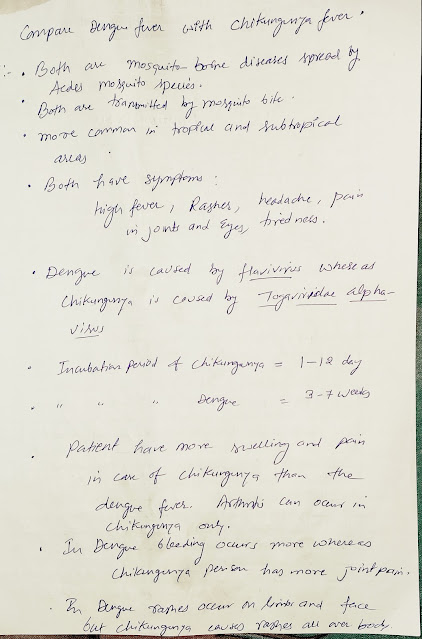 Compare Dengue fever with Chikungunya fever.
:- • Both are mosquito borne diseases spread by
Aedes mosquito species.
• Both are transmitted by mosquito bite.
• more common in tropical and subtropical
areas.
• Both have symptoms:
high fever, Rashes, headache, pain
in joints and Eyes, tiredness.
• Dengue is caused by flavivirus whereas
Chikungunya is caused by Togaviridae alpha-
virus
• Incubation period of Chikungunya = 1-12 day
• " " " Dengue = 3-7 weeks
• Patient have more swelling and pain
in case of Chikungunya than the
dengue fever. Arthritis can occur in
Chikungunya only.
• In Dengue bleeding occurs more whereas
Chikungunya person has more joint pain.
• In Dengue rashes occur on limbs and face
but Chikungunya causes rashes all over body.